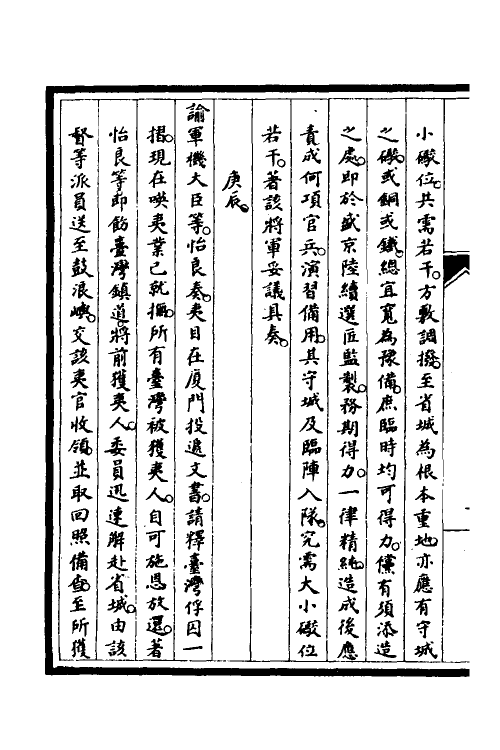 小礮位。共需若干。方敷調撥。至省城為根本重地。亦應有守城
之礮。或銅或鐵。總宜寬為豫備。庶臨時均可得力。儻有須添造
之處。即於盛京陸續選匠監製。務期得力。一律精純。造成後應
責成何項官兵。演習備用。其守城及臨陣入隊。究需大小礮位
若干。著該將軍妥議具奏。
庚辰。
諭軍機大臣等。怡良奏。夷目在廈門投遞文書。請釋臺灣俘囚一
摺。現在㗸夷業已就撫。所有臺灣被獲夷人。自可施恩放還。著
怡良等即飭臺灣鎮道。將前獲夷人。委員迅速解赴省城。由該
督等派員送至鼓浪嶼。交該夷官收領。並取回照備查。至所獲